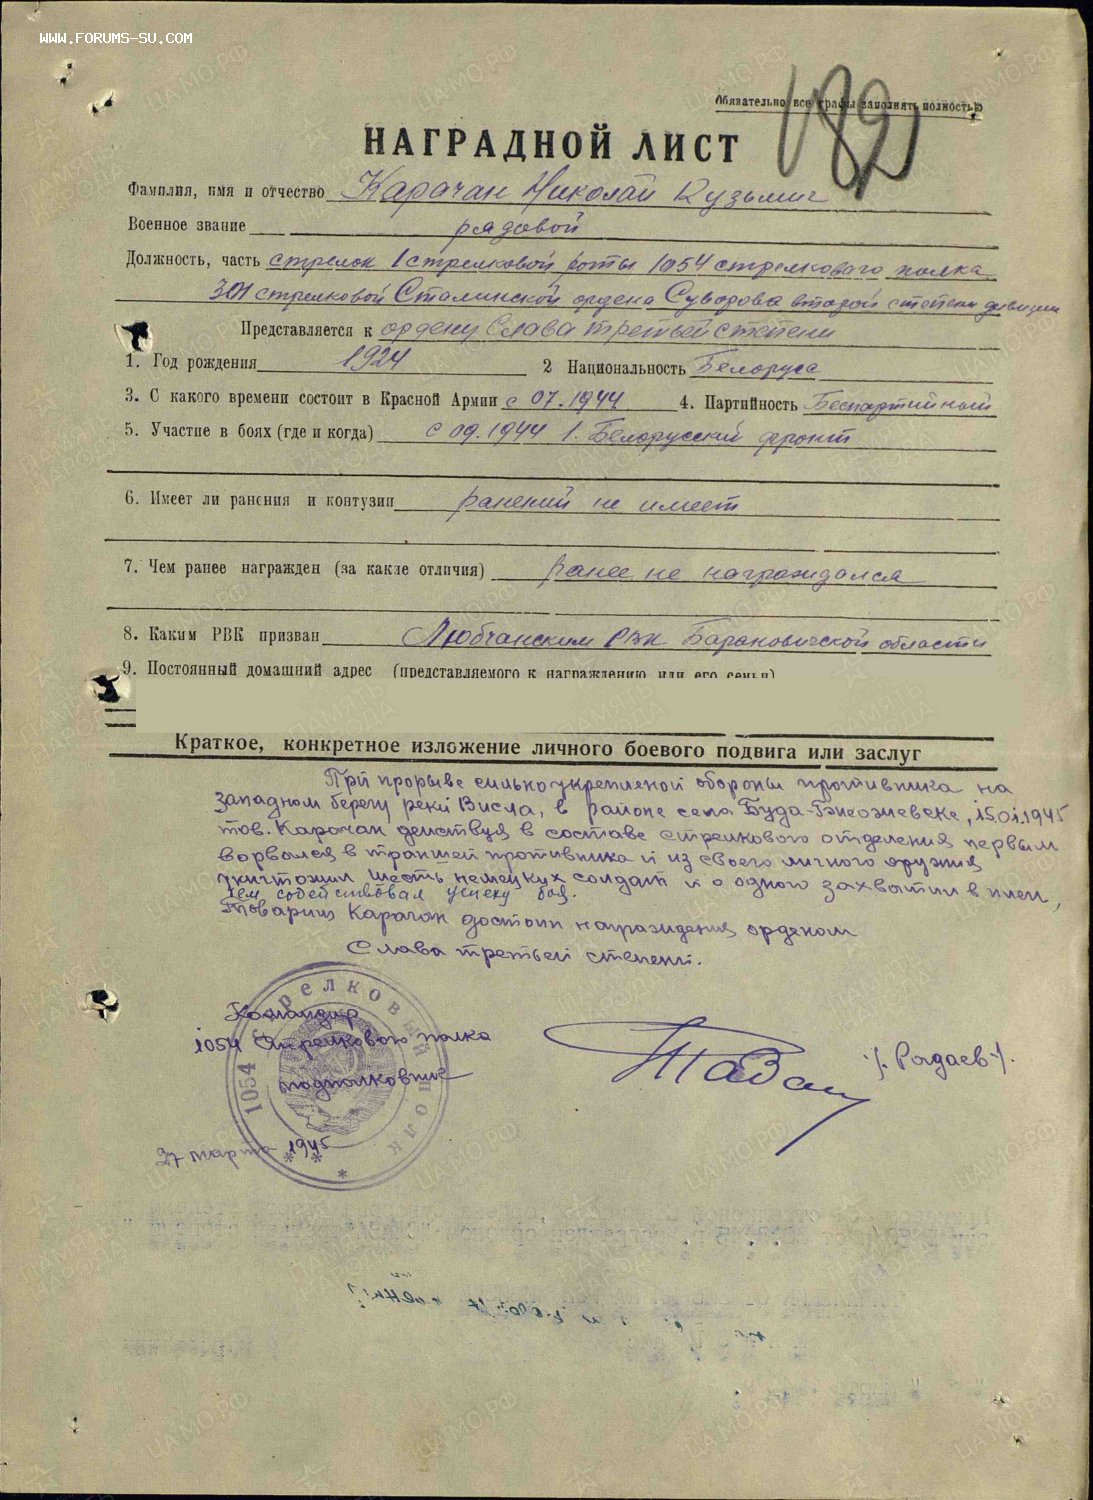 WWW.FORUMS-SU.COM
Обязательно все графы заполнять полностью
182
НАГРАДНОЙ ЛИСТ
Фамилия, имя и отчество Карачан Николай Кузьмич
Военное звание рядовой
Должность, часть стрелок 1 стрелковой роты 1054 стрелкового полка
301 стрелковой Сталинской ордена Суворова второй степени дивизии
Представляется к ордену Слава третьей степени
1. Год рождения 1924 2 Национальность Белоруса
3. С какого времени состоит в Красной Армии с 07.1944 4. Партийность Беспартийный
5. Участие в боях (где и когда) с 09.1944 1. Белорусский фронт
6. Имеет ли ранения и контузии ранений не имеет
7. Чем ранее награжден (за какие отличия) ранее не награждался
8. Каким РВК призван Любчанским РВК Барановичской области
9. Постоянный домашний адрес (представляемого к награждению или его семьи)
Краткое, конкретное изложение личного боевого подвига или заслуг
При прорыве сильноукрепленой обороны противника на
западном берегу реки Висла, в районе села Буда-, 15.01.1945
тов. Карачан действуя в составе стрелкового отделения первым
ворвался в траншей противника и из своего личного оружия
уничтожил шесть немецких солдат и одного захватил в плен,
чем содействовал успеху боя.
Товарищ Карачан достоин награждения орденом
Слава третьей степени.
Командир
1054 Стрелкового полка
подполковник
/. Радаев ./.
27 марта 1945
1054 СТРЕЛКОВЫЙ ПОЛК